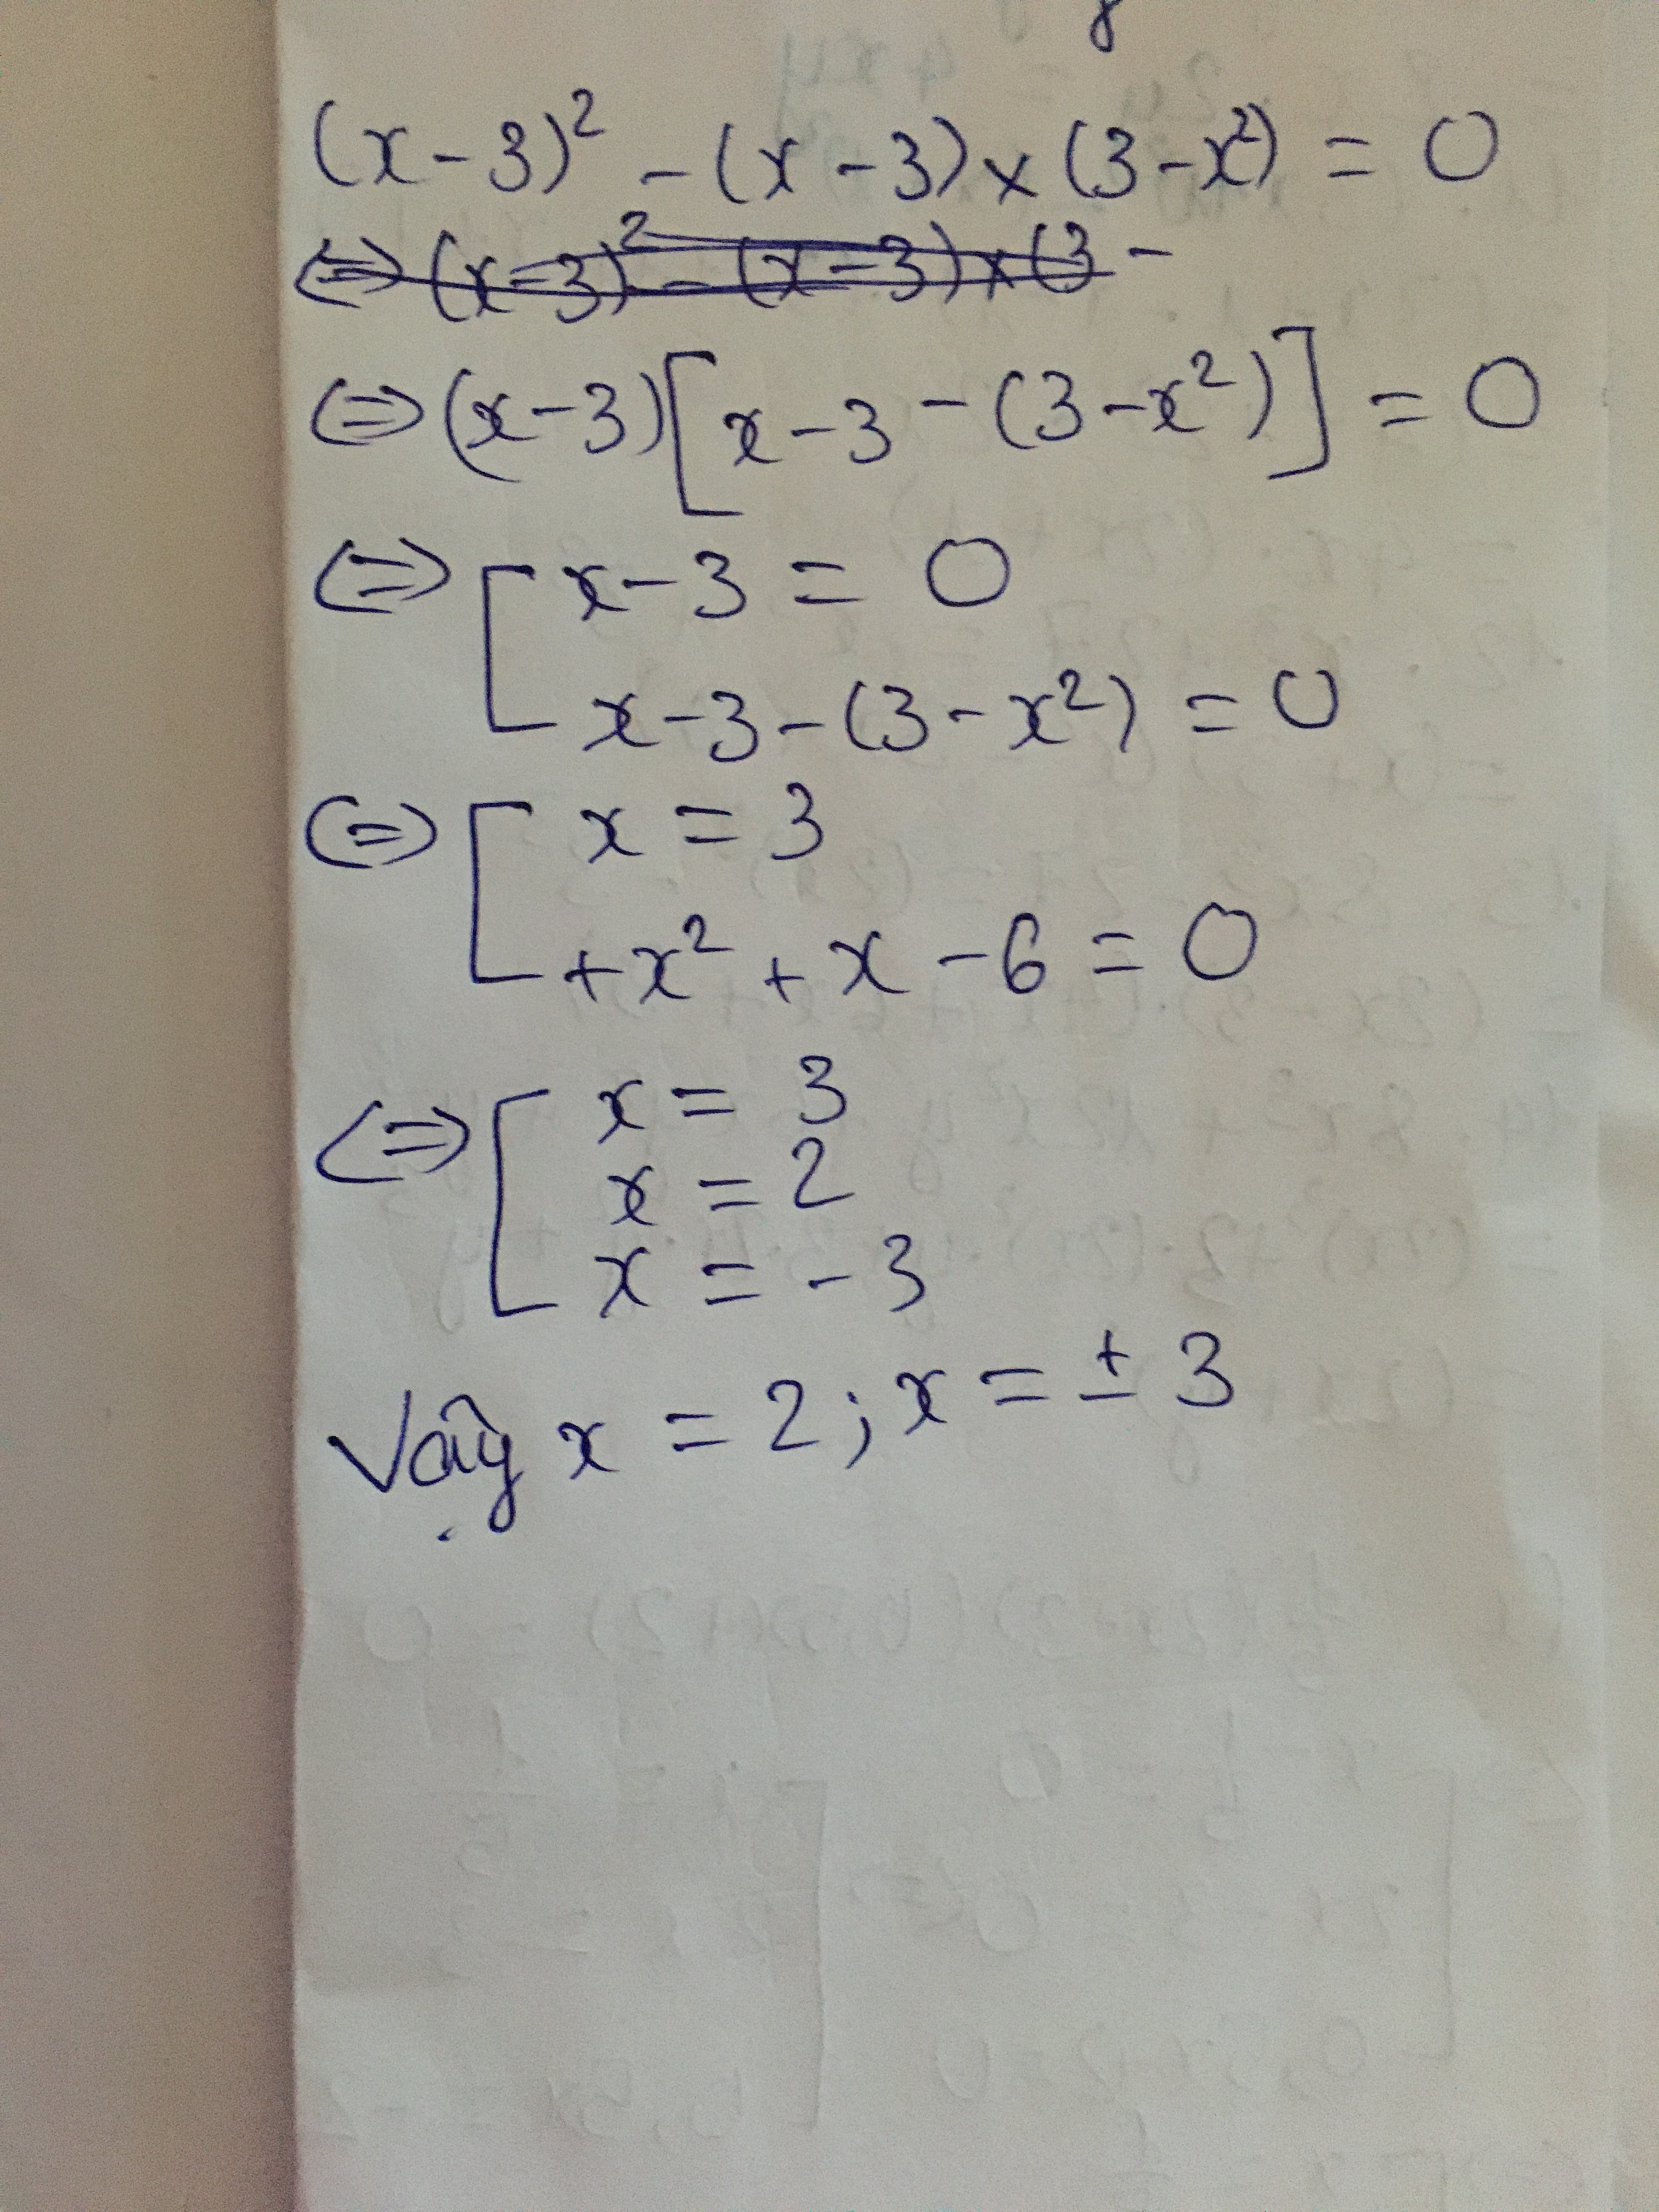 (x-3)² - (x-3) × (3-x²) = 0
⇔ (x-3)² - (x-3) × (3 -
⇔ (x-3)[x-3-(3-x²)] = 0
⇔ [ x-3 = 0
x-3-(3-x²) = 0
⇔ [ x = 3
+x² + x - 6 = 0
⇔ [ x = 3
x = 2
x = -3
Vậy x = 2; x = ± 3